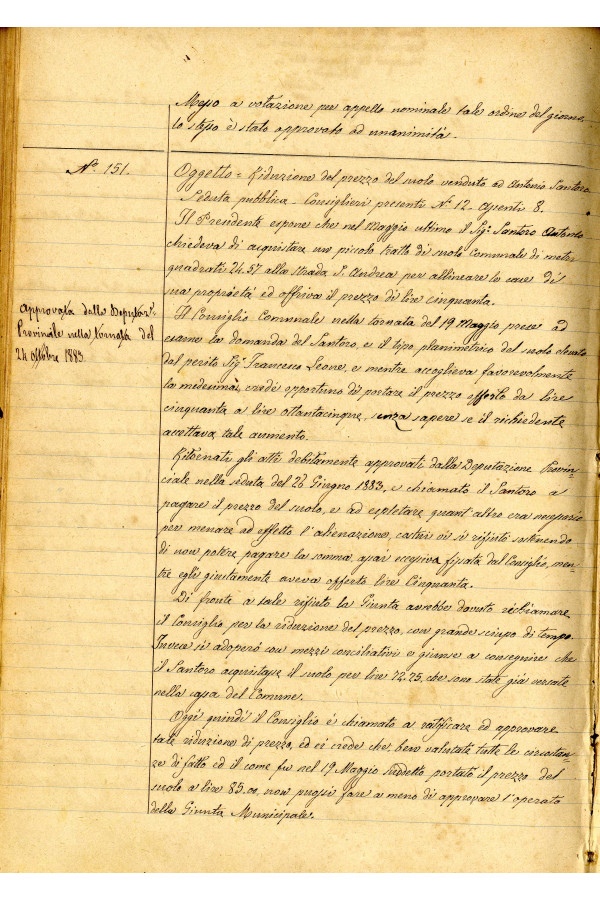 Messo a votazione per appello nominale tale ordine del giorno,
lo stesso è stato approvato ad unanimità.
N.° 151.
Oggetto = Riduzione del prezzo del suolo venduto ad Antonio Santoro
Seduta pubblica - Consiglieri presenti N.° 12. Assenti 8.
Il Presidente espone che nel Maggio ultimo il Sig.r Santoro Antonio
chiedeva di acquistare un piccolo tratto di suolo comunale di metri
quadrati 24.57 alla strada S. Andrea per allineare le case di
sua proprietà ed offriva il prezzo di lire cinquanta.
Approvata dalla Deputaz.e
Provinciale nella tornata del
24 Ottobre 1883
Il Consiglio Comunale nella tornata del 19 Maggio prese ad
esame la domanda del Santoro, e il tipo planimetrico del suolo elevato
dal perito Sig.r Francesco Leone, e mentre accoglieva favorevolmente
la medesima, credè opportuno di portare il prezzo offerto da lire
cinquanta a lire ottantacinque, senza sapere se il richiedente
accettava tale aumento.
Ritornati gli atti debitamente approvati dalla Deputazione Provin-
ciale nella seduta del 26 Giugno 1883, e chiamato il Santoro a
pagare il prezzo del suolo, e ad espletare quant'altro era necessario
per menare ad effetto l'alienazione, costui vi si rifiutò sostenendo
di non potere pagare la somma assai eccessiva fissata dal Consiglio, men-
tre egli giustamente aveva offerto lire Cinquanta.
Di fronte a tale rifiuto la Giunta avrebbe dovuto richiamare
il Consiglio per la riduzione del prezzo, con grande sciupo di tempo.
Invece si adoperò con mezzi conciliativi e giunse a conseguire che
il Santoro acquistasse il suolo per lire 72.25, che sono state già versate
nella cassa del Comune.
Oggi quindi il Consiglio è chiamato a ratificare ed approvare
tale riduzione di prezzo, ed ei crede che, bene valutate tutte le circostan-
ze di fatto ed il come fu nel 19 Maggio suddetto portato il prezzo del
suolo a lire 85.00, non possasi fare a meno di approvare l'operato
della Giunta Municipale.